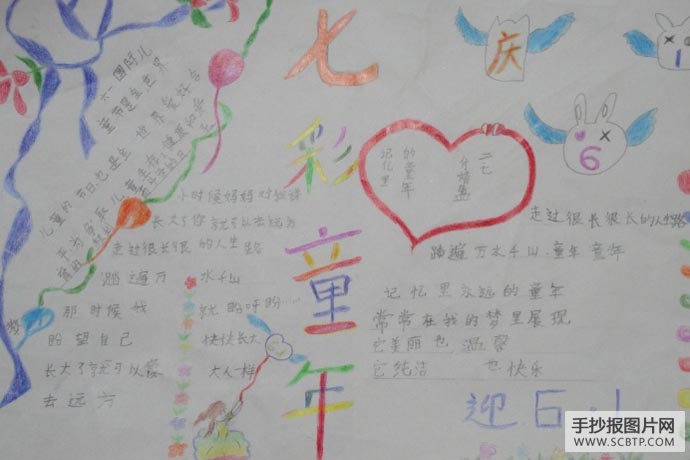 七彩童年
庆
6
1
六一国际儿
童节是全世界
儿童的节日也是全世界爱好
小时候妈妈对我说
长大了你就可以去远方
走过很长很长的人生路
踏遍万水千山
那时候我就盼呀盼…
盼望自己快快长大
长大了就可以像大人一样
去远方
记忆里
的童年
走过很长很长的人生路
踏遍万水千山．童年童年
记忆里永远的童年
常常在我的梦里展现
它美丽也温馨
它纯洁也快乐
迎6·1
手抄报图片网
WWW.SCBTP.COM